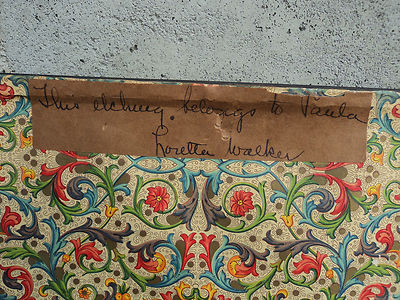 This etching belongs to Paula
Loretta Walker